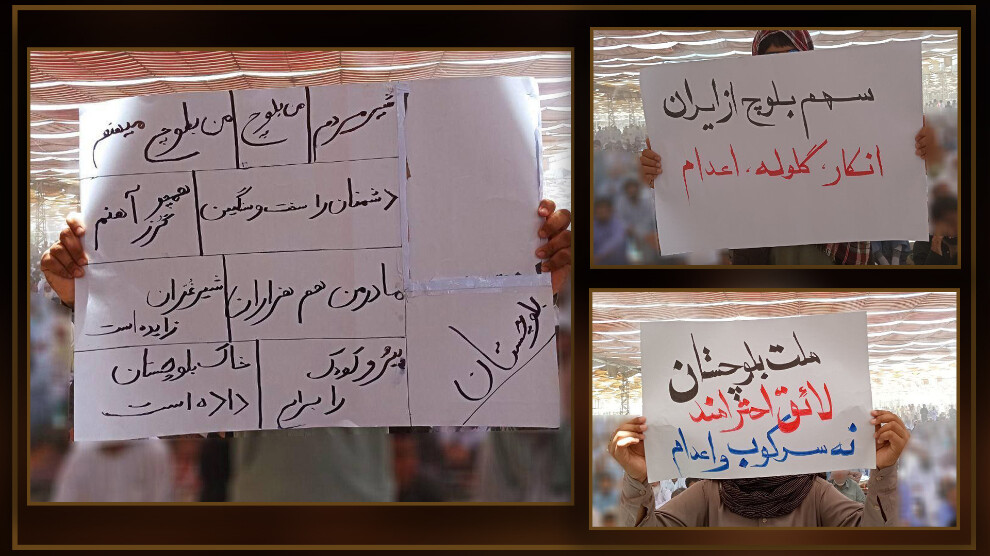 شیر مردم من بلوچ من بلوچ میهنم
دشمنان را سفت و سنگین همچو گرز آهنم
مادر من هم هزاران شیر غران زاییده است
پیر و کودک را برای خاک بلوچستان داده است
بلوچستان
سهم بلوچ از ایران
انکار، گلوله، اعدام
ملت بلوچستان
لائق احترامند
نه سرکوب و اعدام